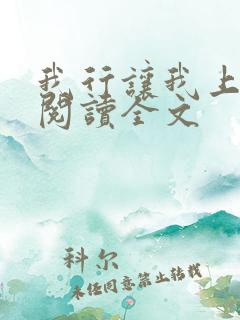 我行讓我上
閱讀全文
科尔
未经同意禁止转载